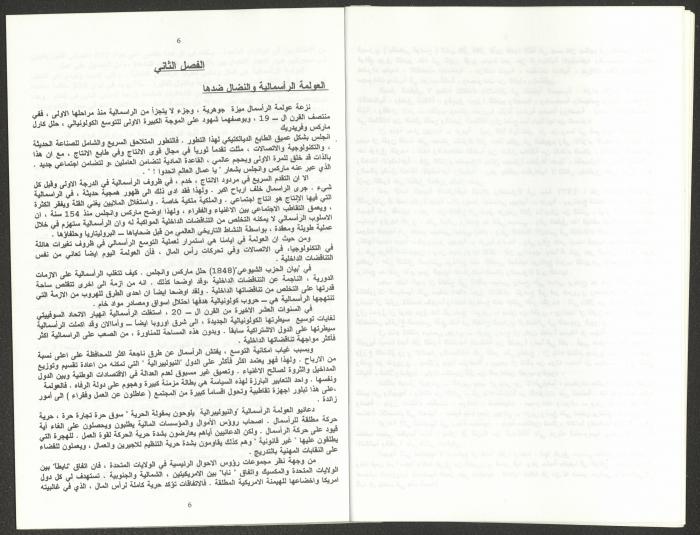 6
الفصل الثاني
العولمة الرأسمالية والنضال ضدها
نزعة عولمة الرأسمال ميزة جوهرية ، وجزء لا يتجزأ من الراسمالية منذ مراحلها الاولى ، ففي
منتصف القرن ال – 19 ، وبوصفهما شهود على الموجة الكبيرة الاولى للتوسع الكولونيالي ، حلل كارل
ماركس وفريدريك
انجلس بشكل عميق الطابع الديالكتيكي لهذا التطور . فالتطور المتلاحق السريع والشامل للصناعة الحديثة
، والتكنولوجية والاتصالات ، مثلت تقدما ثوريا في مجال قوى الانتاج وفي طابع الانتاج ، مع ان هذا
بالذات قد خلق للمرة الاولى وبحجم عالمي ، القاعدة المادية لتضامن العاملين ،و لتضامن اجتماعي جديد .
الذي عبر عنه ماركس وانجلس بشعار " يا عمال العالم اتحدوا ! " .
الا ان التقدم السريع في مردود الانتاج ، خدم ، في ظروف الرأسمالية في الدرجة الاولى وقبل كل
شيء . جرى الراسمال خلف ارباح اكبر . ولهذا فقد ادى ذلك الى ظهور همجية حديثة ، في الراسمالية
التي فيها الإنتاج هو انتاج اجتماعي . والملكية ملكية خاصة . واستغلال الملايين يغني القلة ويفقر الكثرة
، ويعمق التقاطب الاجتماعي بين الاغنياء والفقراء ، ولهذا اوضح ماركس وانجلس منذ 154 سنة ، ان
الاسلوب الرأسمالي لا يمكنه التخلص من التناقضات الداخلية المواكبة له وان الرأسمالية ستهزم في خلال
عملية طويلة ومعقدة ، بواسطة النشاط التاريخي العالمي من قبل ضحاياها – البروليتاريا وحلفاؤها .
ومن حيث ان العولمة في ايامنا هي استمرار لعملية التوسع الرأسمالي في ظروف تغيرات هائلة
في التكنولوجيا، في الاتصالات وفي تحركات رأس المال ، فأن العولمة اليوم ايضا تعاني من نفس
التناقضات الداخلية .
في "بيان الحزب الشيوعي"(1848) حلل ماركس وانجلس . كيف تتغلب الرأسمالية على الازمات
الدورية ، الناجمة عن التناقضات الداخلية ،وقد اوضحا كذلك . انه من ازمة الى اخرى تتقلص ساحة
قدرتها على التخلص من تناقضاتها الداخلية . ولقد اوضحا ايضا ان احدى الطرق للهروب من الازمة التي
تنتهجها الرأسمالية هي – حروب كولونيالية هدفها احتلال اسواق ومصادر مواد خام .
في السنوات العشر الاخيرة من القرن ال – 20 ، استغلت الرأسمالية انهيار الاتحاد السوفييتي
لغايات توسيع سيطرتها الكولونيالية الجديدة ، الى شرق اوروبا ايضا – وأمالان وقد اكملت الرأسمالية
سيطرتها على الدول الاشتراكية سابقا . وبدون هذه المساحة للمناورة ، من الصعب على الراسمالية اكثر
فأكثر مواجهة تناقضاتها الداخلية .
وبسبب غياب امكانية التوسع ، يفتش الرأسمال عن طرق ناجعة اكثر للمحافظة على اعلى نسبة
من الارباح . ولهذا فهو يعتمد اكثر فأكثر على الدول "النيوليبرالية " التي تمكنه من اعادة تقسيم وتوزيع
المداخيل والثروة لصالح الاغنياء . وتعميق غير مسبوق لعدم العدالة في الاقتصادات الوطنية وبين الدول
ونفسها . واحد التعابير البارزة لهذه السياسة هي بطالة مزمنة كبيرة وهجوم على دولة الرفاه . فالعولمة
،على هذا تبلور اجهزة تقاطبية وتحول اقساما كبيرة من المجتمع ( عاطلون عن العمل وفقراء ) الى أمور
زائدة .
دعائيو العولمة الرأسمالية "والنيوليبرالية يلوحون بمقولة الحرية " سوق حرة تجارة حرة ، حرية
حركة مطلقة للرأسمال . اصحاب رؤوس الأموال والمؤسسات المالية يطلبون ويحصلون على الغاء أية
قيود على حركة الرأسمال . ولكن الدعائيين أياهم يعارضون بشدة حرية الحركة لقوة العمل . للهجرة التي
يطلقون عليها " غير قانونية " وهم كذلك يقاومون بشدة حرية التنظيم للاجيرين والعمال ، ويعملون للقضاء
على النقابات المهنية بالتدريج .
من وجهة نظر مجموعات رؤوس الاموال الرئيسية في الولايات المتحدة ، فان اتفاق "نافتا" بين
الولايات المتحدة والمكسيك واتفاق " نابا" بين الامريكيتين ، الشمالية والجنوبية . تستهدف لي كل دول
امريكا واخضاعها للهيمنة الامريكية المطلقة . فالاتفاقات تؤكد حرية كاملة لرأس المال ، الذي في غالبيته
6